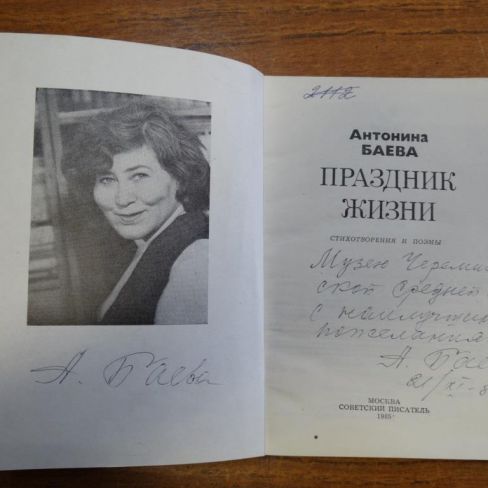 А. Баева
2112
Антонина
БАЕВА
ПРАЗДНИК
ЖИЗНИ
СТИХОТВОРЕНИЯ И ПОЭМЫ
Музею Черемш
ской средней
с наилучши
пожелания
А. Бае
21/XI-8
МОСКВА
СОВЕТСКИЙ ПИСАТЕЛЬ
1985